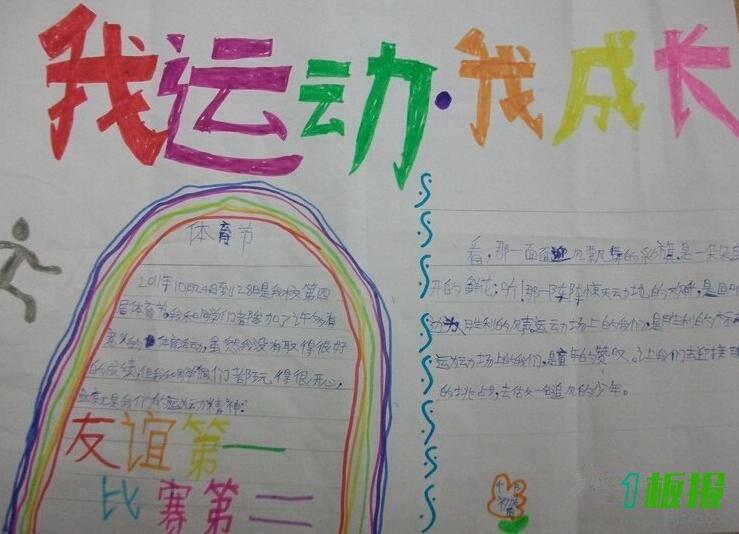 我运动·我成长
体育节
2011年10月24日到28日是我校第四
届体育节,我和同学们都参加了许多有
意义的体育运动,虽然我没有取得很好
的成绩,但我和同学们都玩得很开心,
这就是我们的运动精神:
友谊第一
比赛第二
看,那一面面迎风飘舞的彩旗,是一朵朵
开的鲜花;听!那一阵阵惊天动地的是
为胜利的运动场上的我们,是胜利的
运动场上的我们,是童年的赞叹。让我们去迎接
的挑战,去做一个追风的少年。
1板报